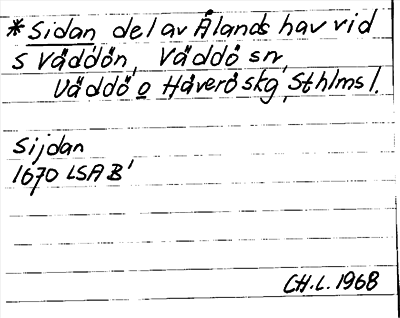 * Sidan del av Ålands hav vid
s Väddön, Väddö sn,
Väddö o Häverö skg, Sthlms l.
Sijdan
1670 LSA B'
CH.L. 1968